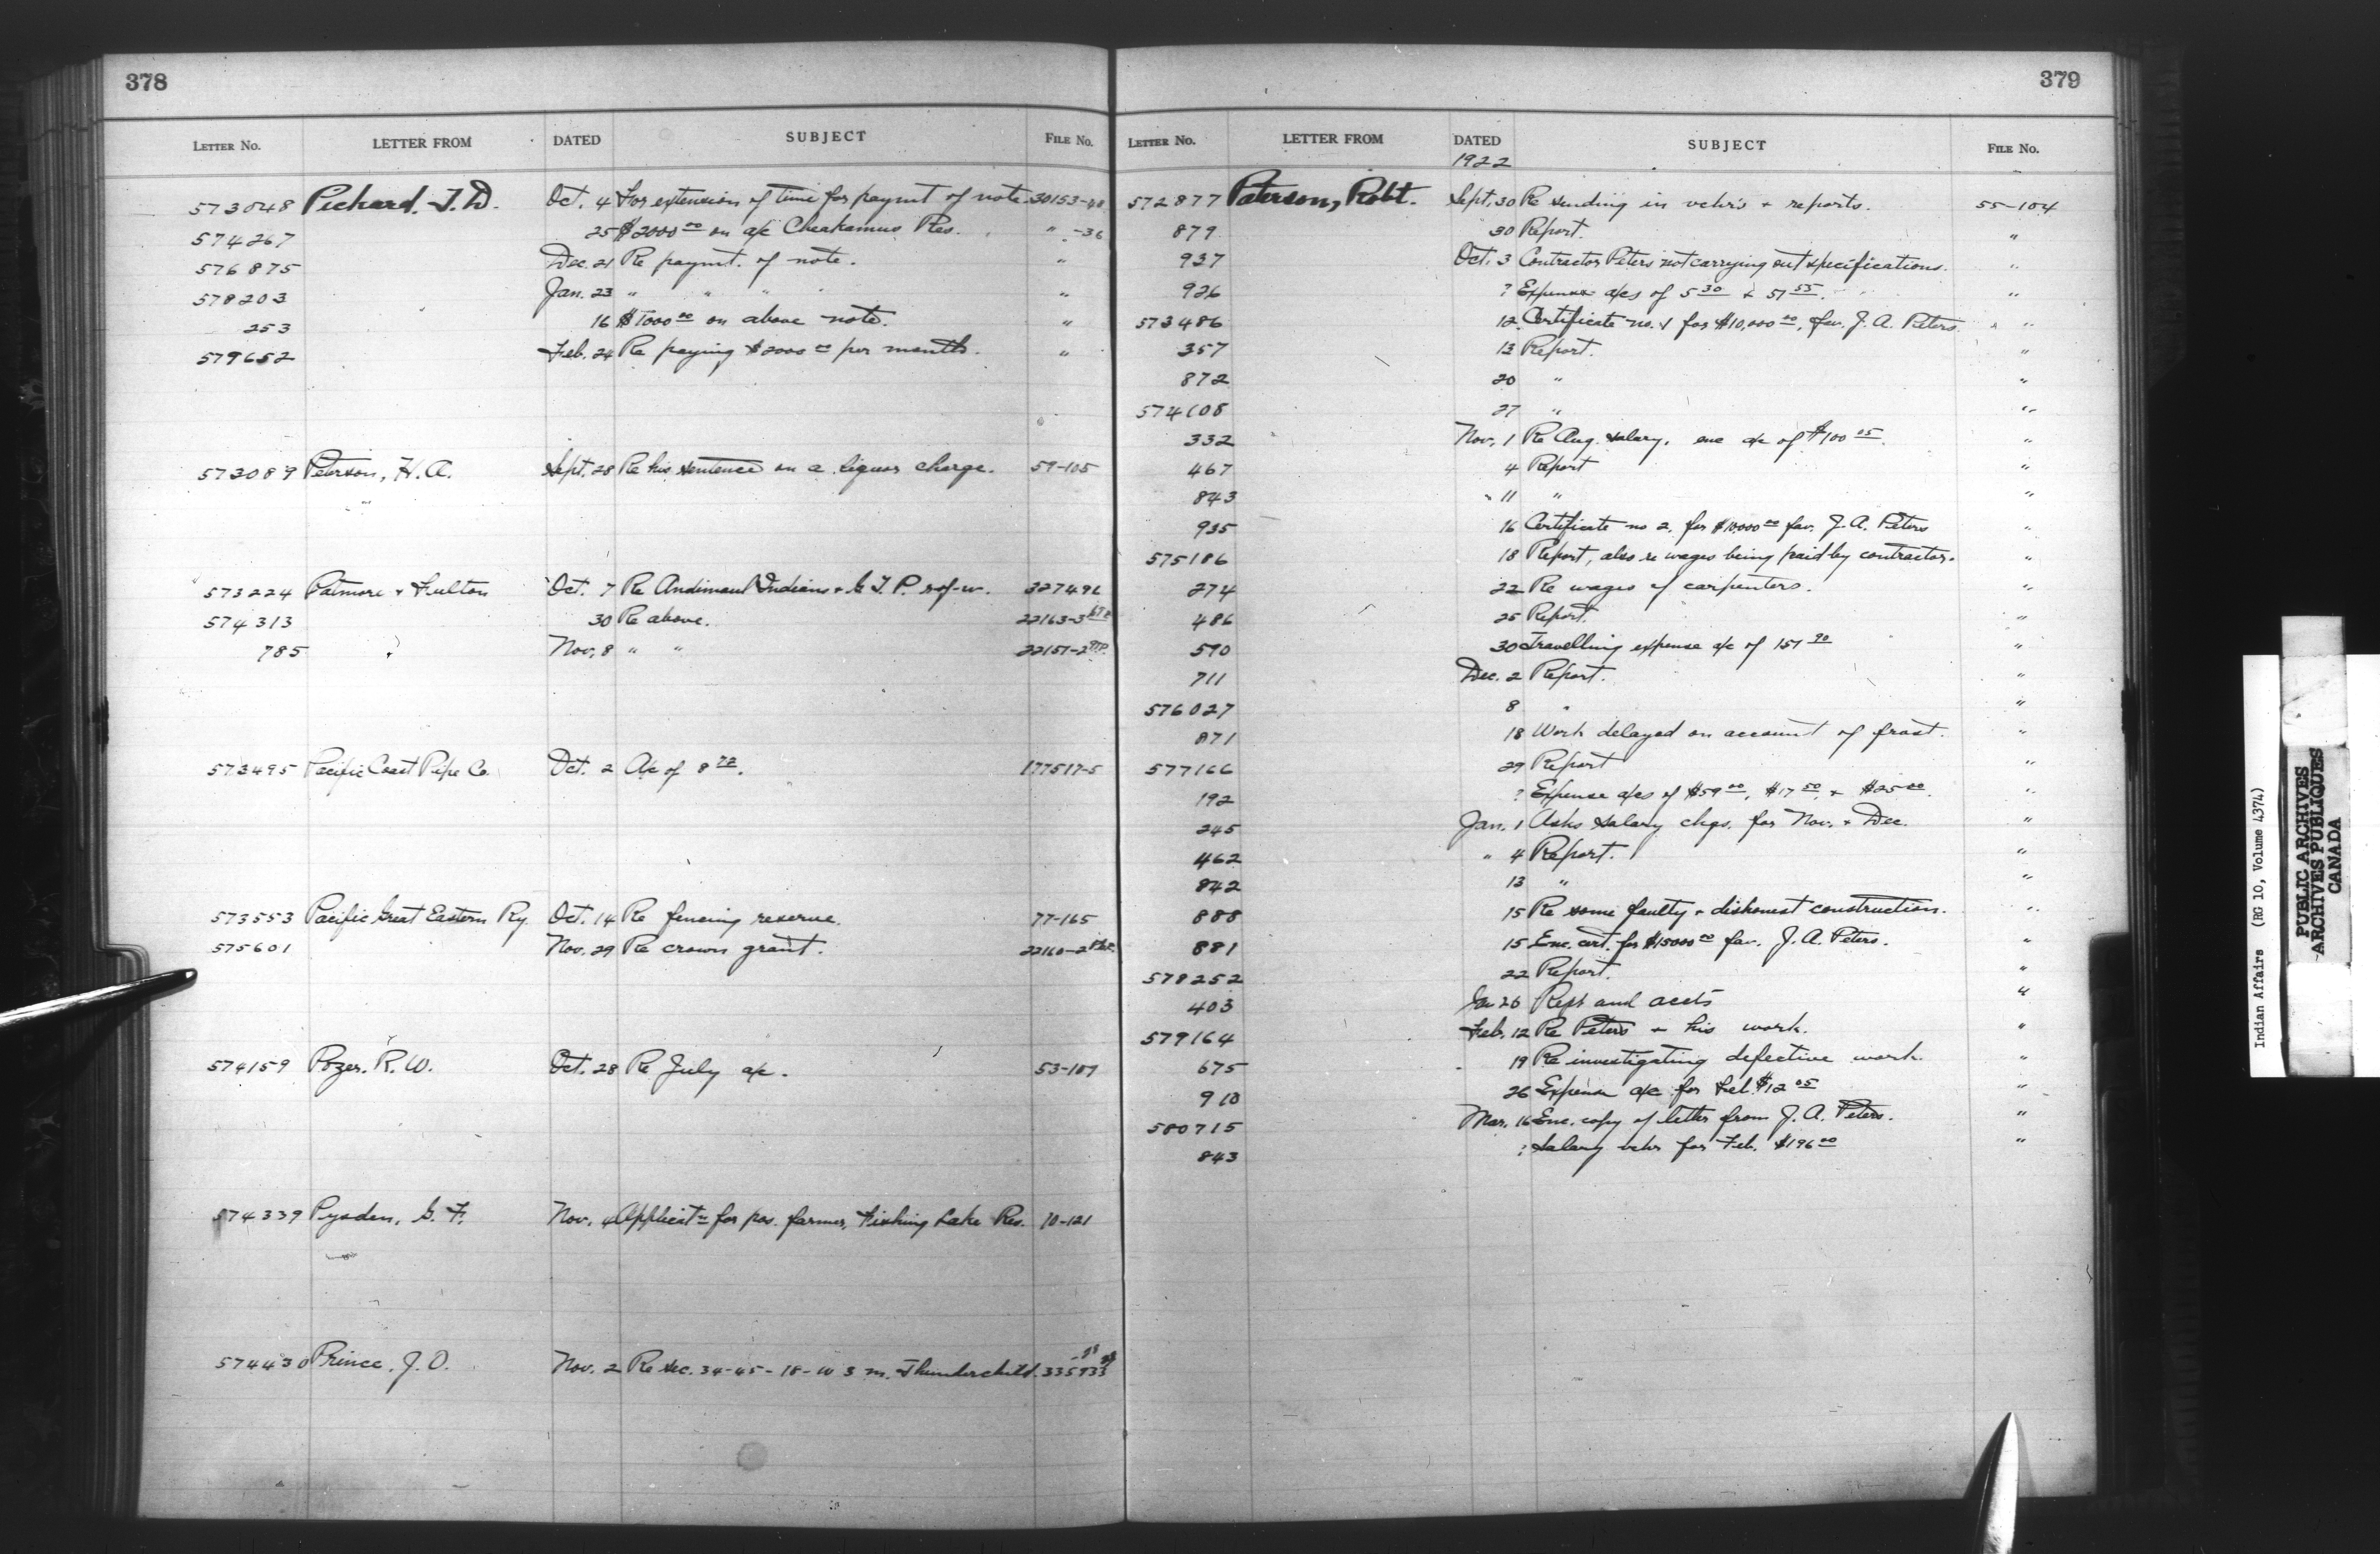 378
LETTER No. LETTER FROM DATED SUBJECT FILE No.
573048 Pichard, J. D. Oct. 4 For extension of time for paymt of note 30153-48
574267 25 $2000 00 on a/c Cheakamus Res. " -36
576875 Dec. 21 Re paymt. of note. "
578203 Jan. 23 " " " " "
253 16 $1000 00 on above note. "
579652 Feb. 24 Re paying $2000 00 per month. "
573089 Peterson, H. A. Sept. 28 Re his sentence on a liquor charge. 59-105
573224 Patmore & Fulton Oct. 7 Re Andimaul Indians & G. T. P. r of-w. 327496
574313 30 Re above. 22163-3
785 " Nov, 8 " " 22151-2
573495 Pacific Coast Pipe Co. Oct. 2 A/c of 8 72. 177517-5
573553 Pacific Great Eastern Ry. Oct. 14 Re fencing reserve. 77-165
575601 Nov. 29 Re crown grant. 22160-2
574159 Pozer, R. W. Oct. 28 Re July a/c. 53-107
574339 Pysden, G. F. Nov. 4 Applicatn for pos. farmer, Fishing Lake Res. 10-121
574430 Prince, J. O. Nov. 2 Re Sec. 34-45-18-W 3 m. Thunderchild. 335933
379
LETTER No. LETTER FROM DATED SUBJECT FILE No.
1922
572877 Paterson, Robt. Sept, 30 Re sending in vchrs + reports. 55-104
879 " 30 Report. "
937 Oct. 3 Contractor Peters not carrying out specifications. "
926 ? Expenses a/cs of 5 30 & 51 55. "
573486 12 Certificate no. 1 for $10,000 00, fav. J. A. Peters. "
357 13 Report. "
872 20 " "
574108 27 " "
332 Nov, 1 Re Aug. salary, enc a/c of $100 05. "
467 4 Report "
843 " 11 " "
935 16 Certificate no 2, for $10000 00 fav. J. A. Peters "
575186 18 Report, also re wages being paid by contractor. "
274 22 Re wages of carpenters. "
486 25 Report. "
590 30 Travelling expense a/c of 151 90 "
711 Dec. 2 Report. "
576027 8 " "
871 18 Work delayed on account of frost. "
577166 29 Report "
192 ? Expense a/cs of $59 00, $17 50, & $25 00. "
245 Jan. 1 Asks salary chqs. for Nov. & Dec. "
462 " 4 Report. "
842 13 " "
888 15 Re some faulty & dishonest construction. "
881 15 Enc. cert. for $15000 00 fav. J. A. Peters. "
578252 22 Report. "
403 Jan 26 Rept and accts "
579164 Feb. 12 Re Peters & his work. "
675 19 Re investigating defective work. "
910 26 Expense a/c for Feb. $12 05 "
580715 Mar. 16 Enc. copy of letter from J. A. Peters. "
843 ? Salary vchr for Feb. $196 00 "
Indian Affairs (RG 10, Volume 4374)
PUBLIC ARCHIVES
ARCHIVES PUBLIQUES
CANADA